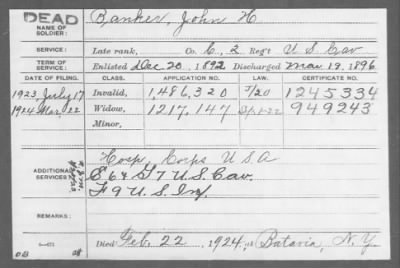 DEAD
NAME OF SOLDIER: Banker, John H
SERVICE: Late rank, Co. C, 2 Reg't U S Cav
TERM OF SERVICE: Enlisted Dec 20, 1892 Discharged Mar. 19, 1896
DATE OF FILING. CLASS. APPLICATION NO. LAW. CERTIFICATE NO.
1923, July 17 Invalid, 1,486,320 1245334
1924 Mar 22 Widow, 1217,147 949243
Minor,
ADDITIONAL SERVICES: Hosp. Corps U S A
& G 7 U.S. Cav.
F 9 U.S. Inf.
REMARKS:
Died Feb. 22, 1924, at Batavia, N.Y.